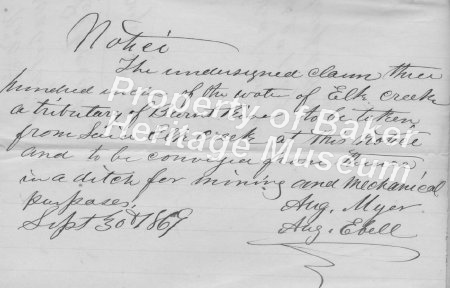 Notice
The undersigned claim three
hundred inches of the water of Elk Creek
a tributary of Burnt River to be taken
from said Elk Creek at this notice
and to be conveyed from thence
in a ditch for mining and mechanical
purposes.
Aug. Myer
Sept 30th 1869
Aug. Ebell
Property of Baker
Heritage Museum